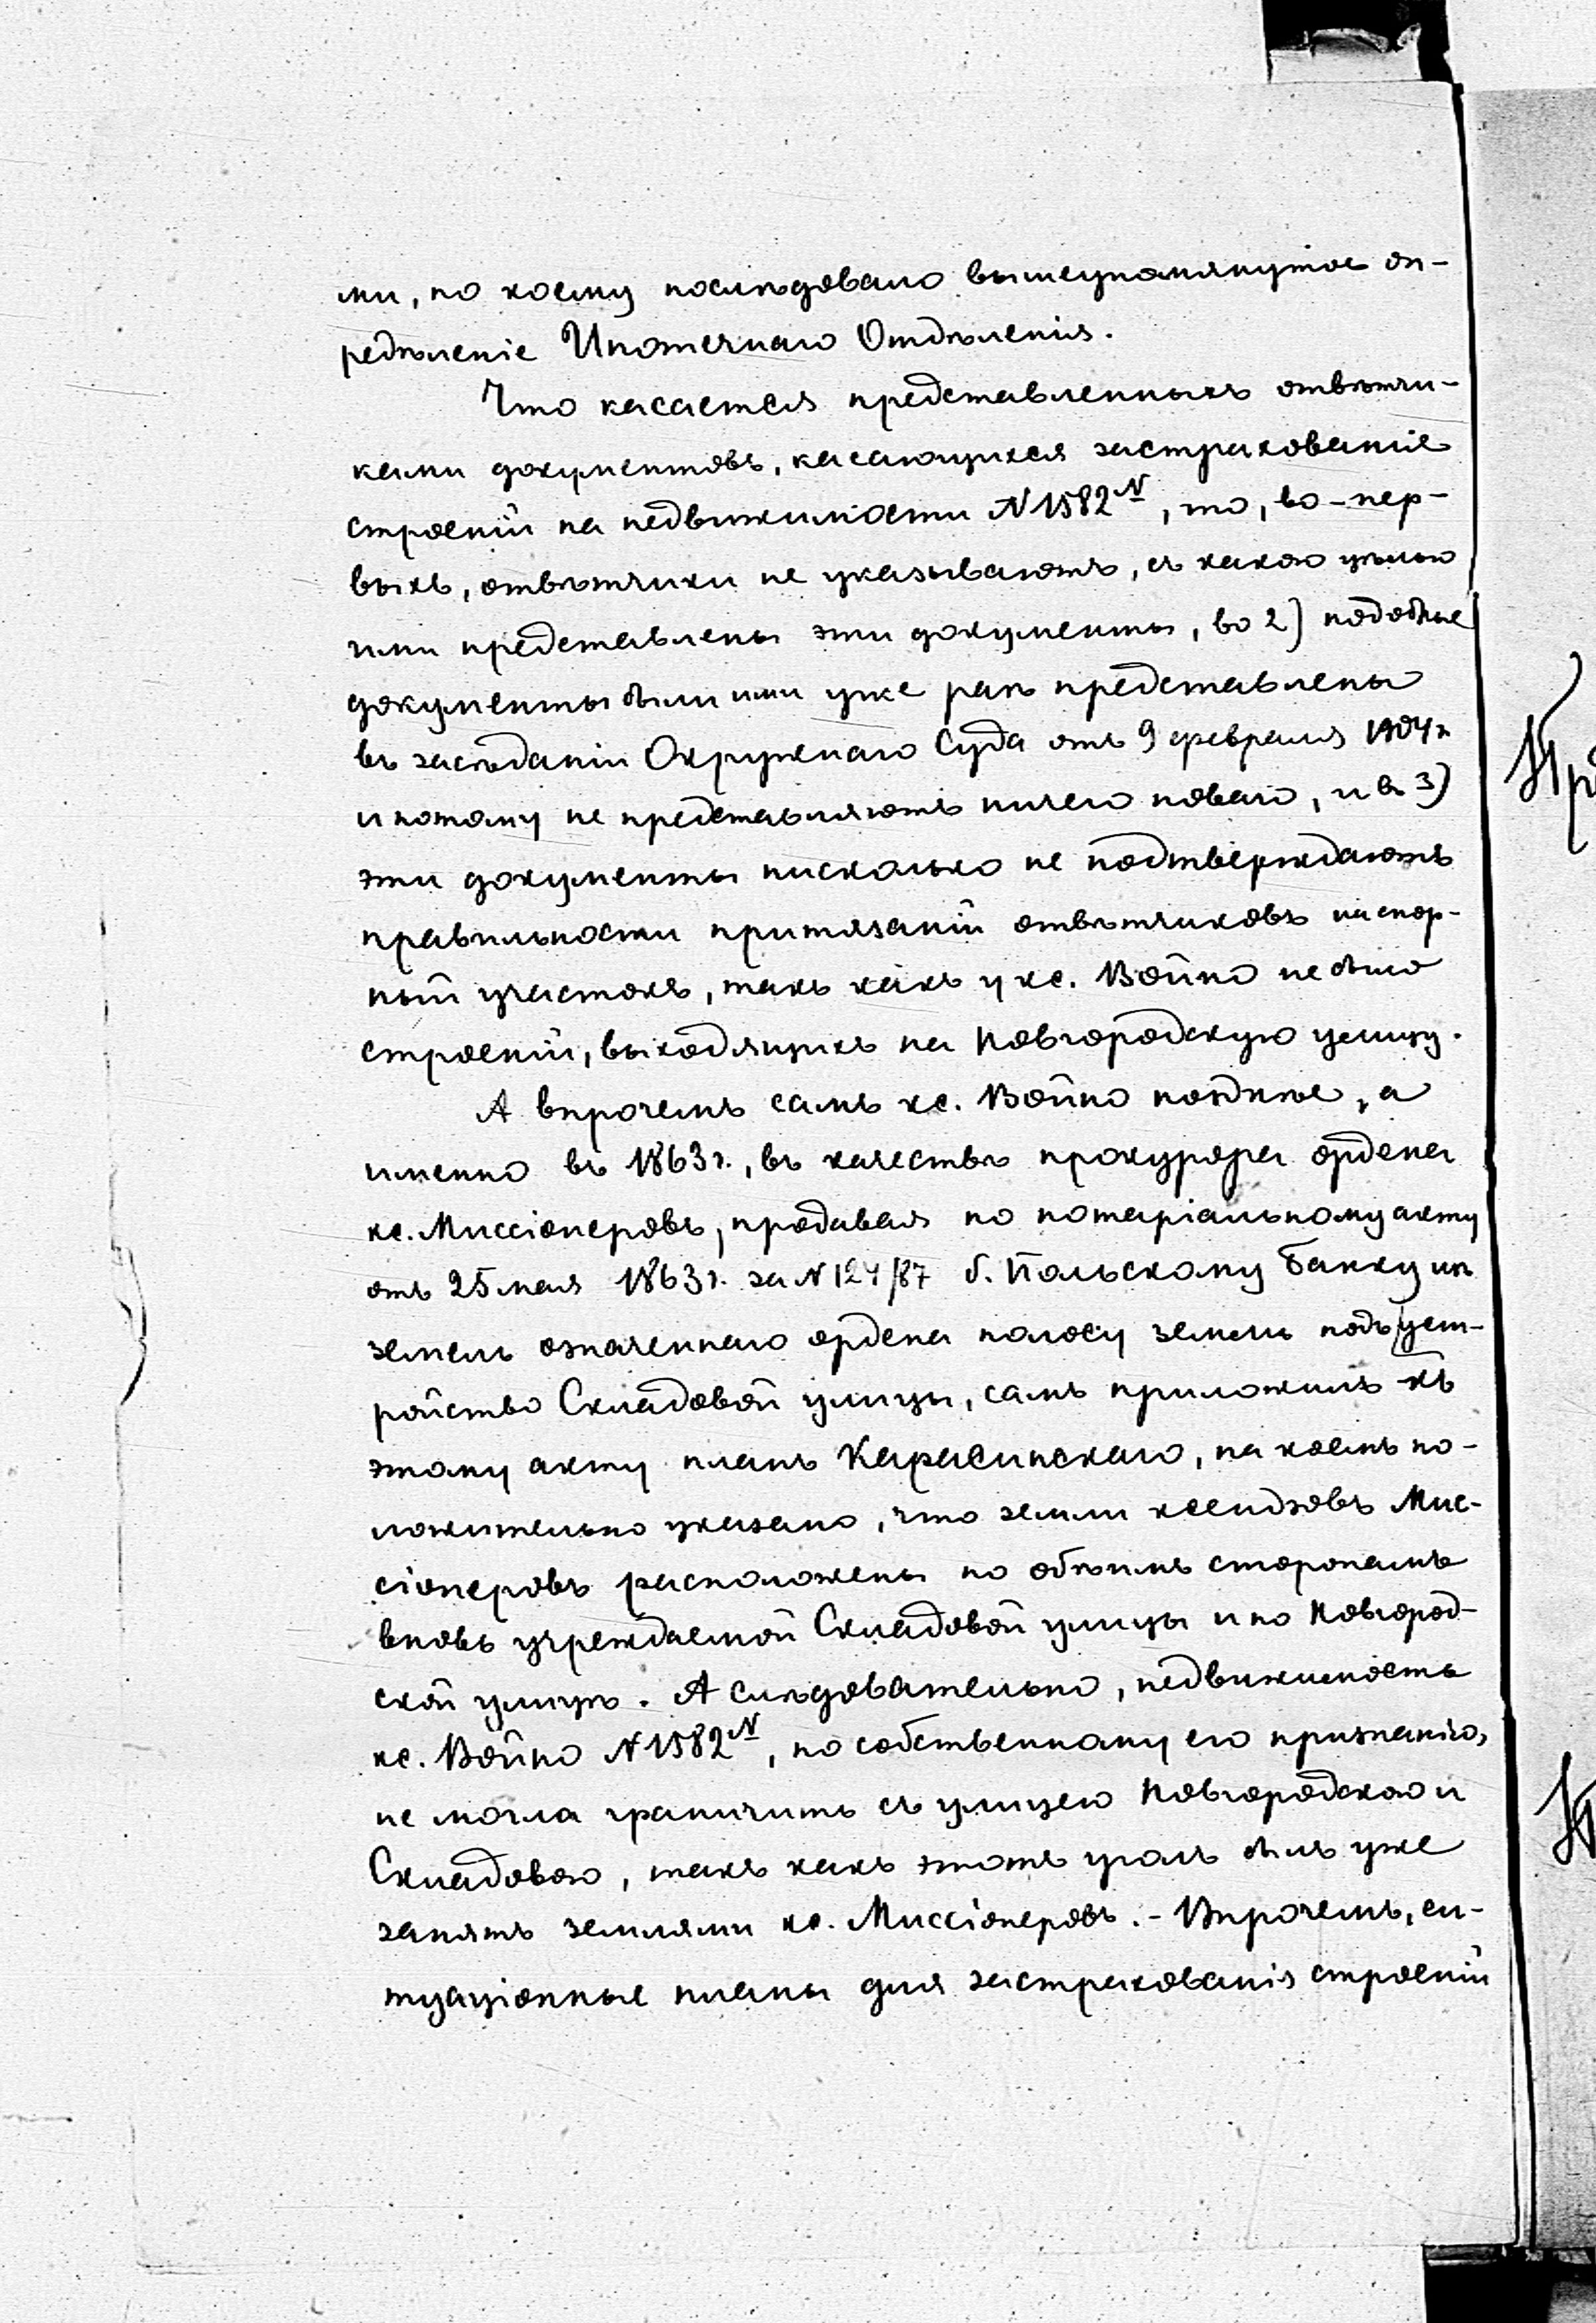 ми, по коему послѣдовало вышеупомянутое оп-
редѣленіе Ипотечнаго Отдѣленія.
Что касается представленныхъ отвѣтчи-
ками документовъ, касающихся застрахованіе
строеній на недвижимости N 1582 N, то, во-пер-
выхъ, отвѣтчики не указываютъ, съ какою цѣлью
ими представлены эти документы, во 2) подобные
документы были ими уже разъ представлены
въ засѣданіи Окружнаго Суда отъ 9 февраля 1904 г.
и потому не представляютъ ничего новаго, и въ 3)
эти документы нисколько не подтверждаютъ
правильности притязаній отвѣтчиковъ на спор-
ный участокъ, такъ какъ у кс. Войно не было
строеній, выходящихъ на Новгородскую улицу.
А впрочемъ самъ кс. Войно позднѣе, а
именно въ 1863 г., въ качествѣ прокурора ордена
кс. Миссіонеровъ, продавая по нотаріальному акту
отъ 25 мая 1863 г. за N 124/87 б. Польскому Банку изъ
земель означеннаго ордена полосу земли подъ уст-
ройство Складовой улицы, самъ приложилъ къ
этому акту планъ Карасинскаго, на коемъ по-
ложительно указано, что земли ксендзовъ Мис-
сіонеровъ расположены по обѣимъ сторонамъ
вновь учреждаемой Складовой улицы и по Новгород-
ской улицѣ. А слѣдовательно, недвижимость
кс. Войно N 1582 N, по собственному его признанію,
не могла граничить съ улицею Новгородскою и
Складовою, такъ какъ этотъ уголъ былъ уже
занятъ землями кс. Миссіонеровъ. - Впрочемъ, си-
туаціонные планы для застрахованія строеній